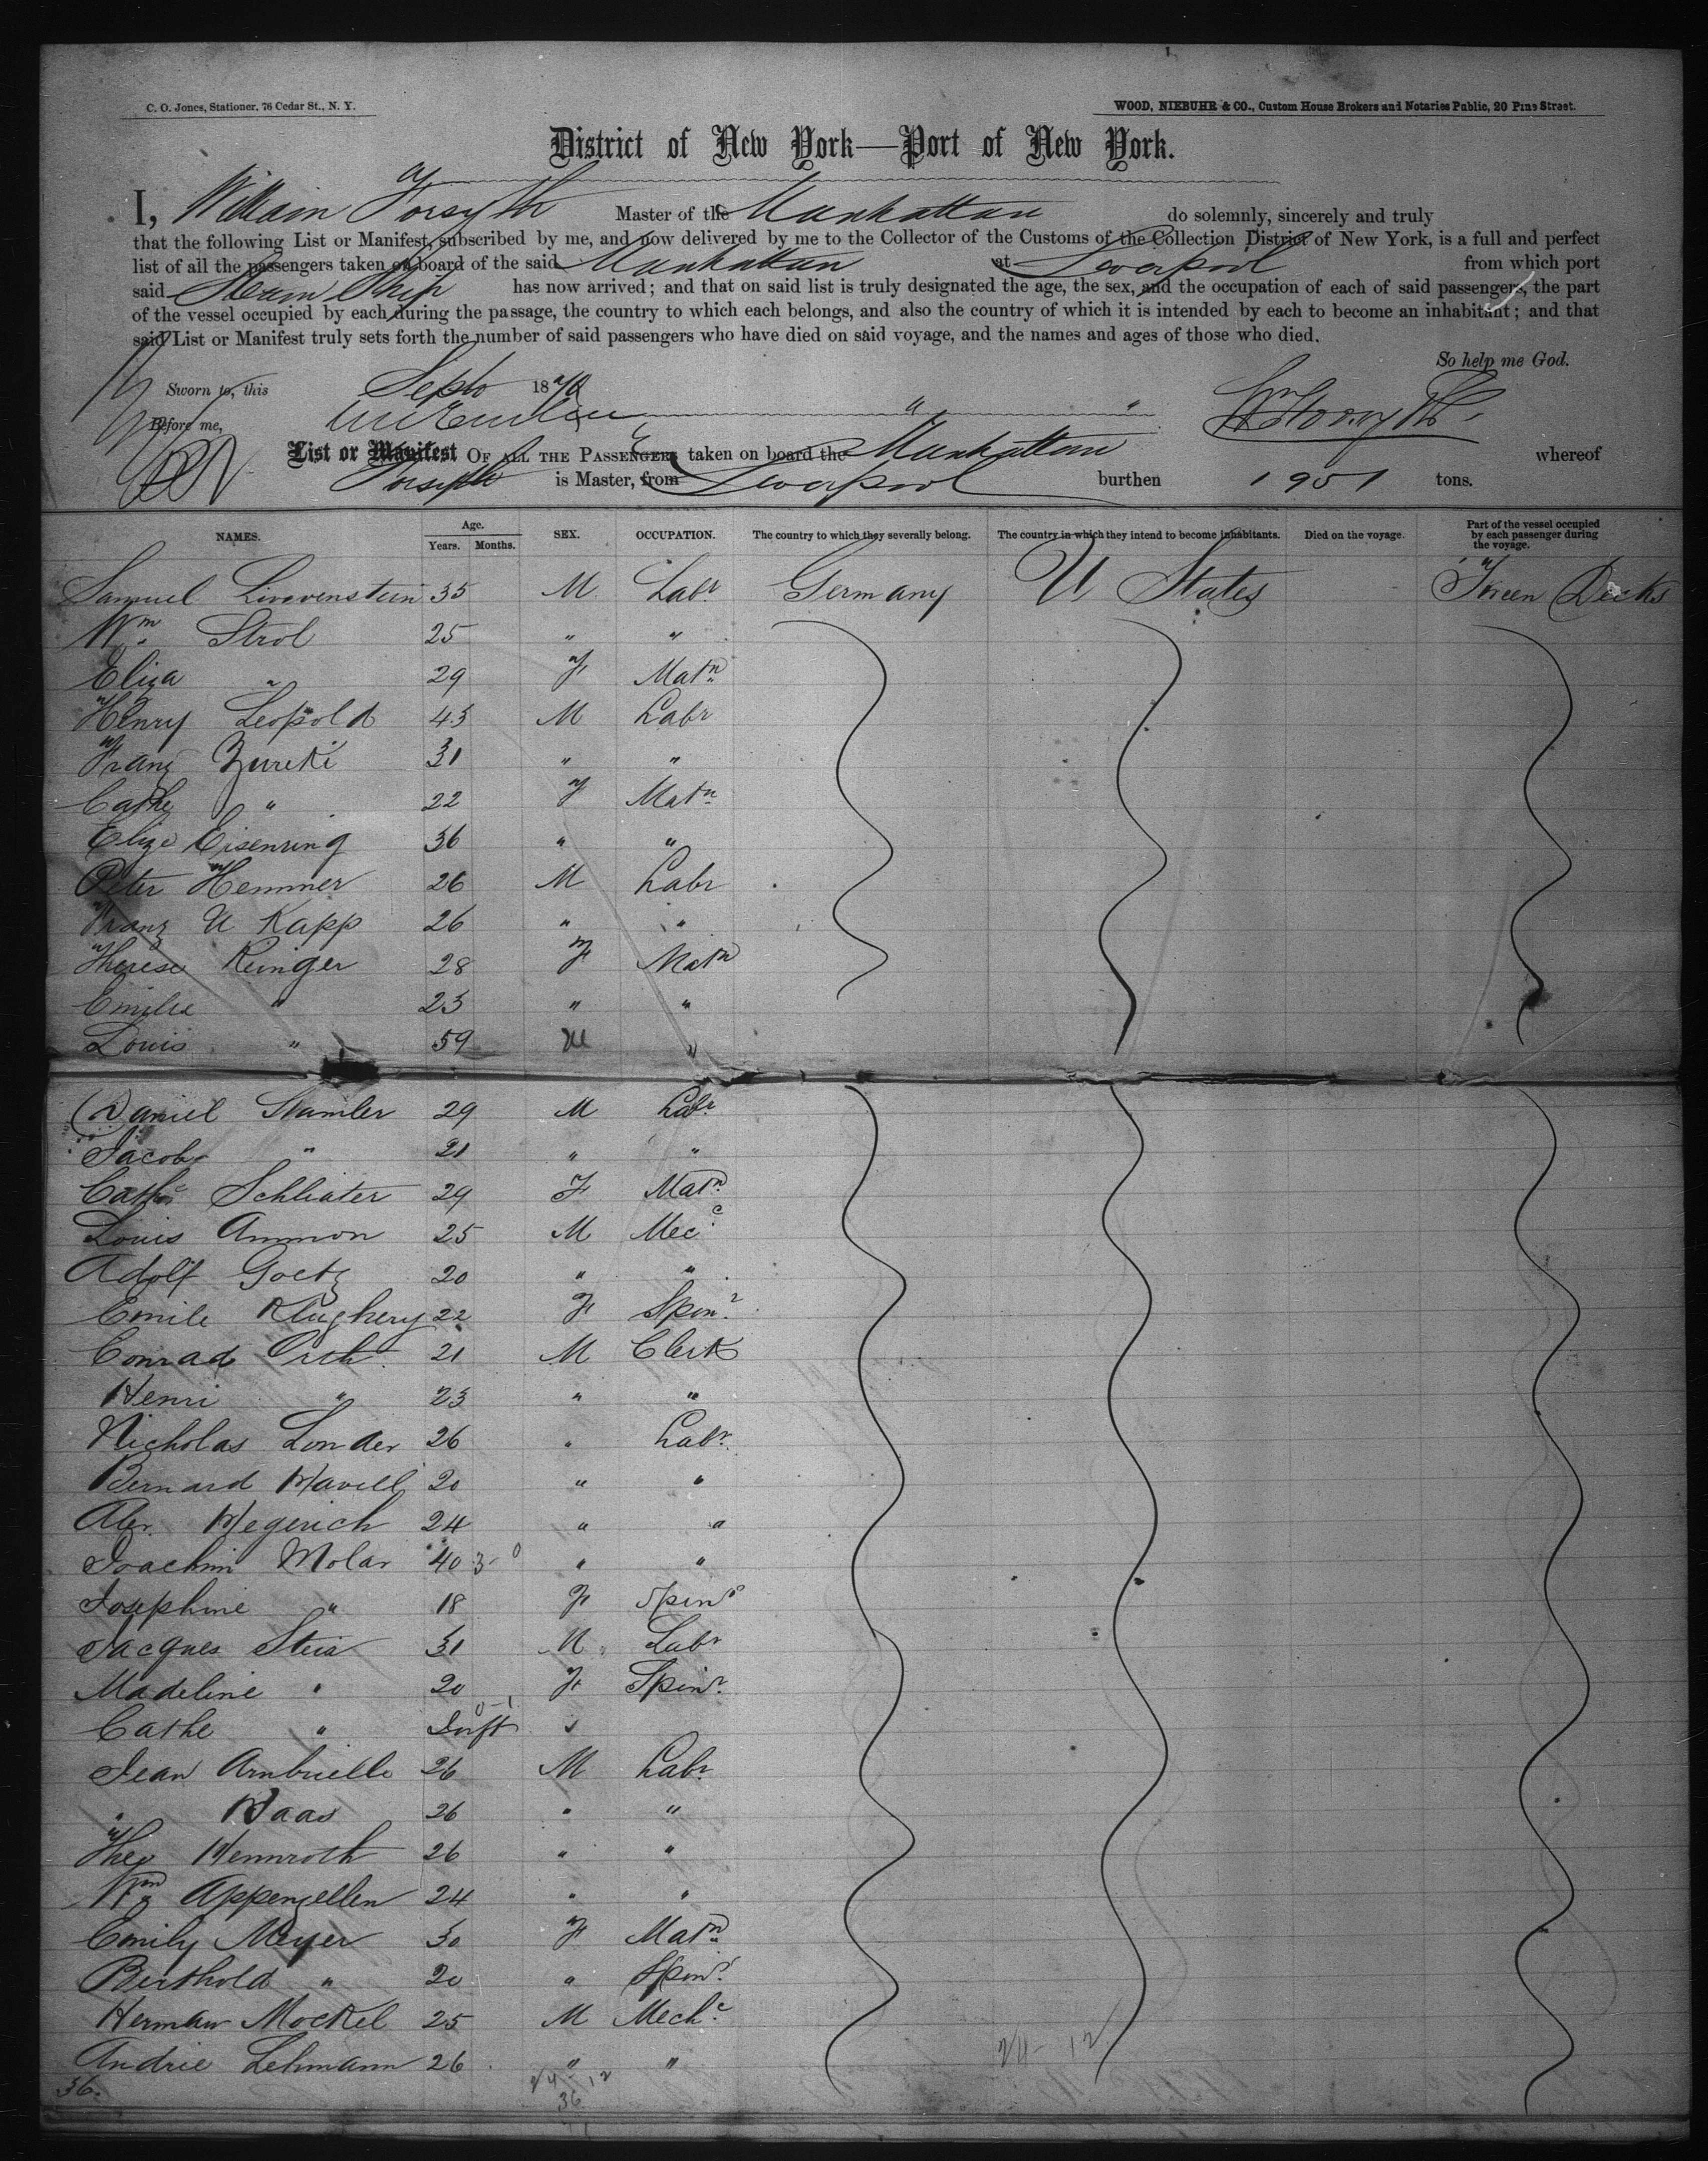 C. O. Jones, Stationer, 76 Cedar St., N. Y.
WOOD, NIEBUHR & CO., Custom House Brokers and Notaries Public, 20 Pine Street.
District of New York—Port of New York.
I, William Forsyth Master of the Manhattan do solemnly, sincerely and truly
that the following List or Manifest, subscribed by me, and now delivered by me to the Collector of the Customs of the Collection District of New York, is a full and perfect
list of all the passengers taken on board of the said Manhattan at Liverpool from which port
said Steam Ship has now arrived; and that on said list is truly designated the age, the sex, and the occupation of each of said passengers, the part
of the vessel occupied by each during the passage, the country to which each belongs, and also the country of which it is intended by each to become an inhabitant; and that
said List or Manifest truly sets forth the number of said passengers who have died on said voyage, and the names and ages of those who died.
So help me God.
Sworn to, this Sept 1870
Before me, Wm Forsyth
List or Manifest OF ALL THE PASSENGERS taken on board the Manhattan whereof
Forsyth is Master, from Liverpool burthen 1901 tons.
NAMES. Age. Years. Months. SEX. OCCUPATION. The country to which they severally belong. The country in which they intend to become inhabitants. Died on the voyage. Part of the vessel occupied by each passenger during the voyage.
Samuel 35 M Labr Germany U States Tween Decks
Wm Strol 25 " "
Eliza " 29 F Matn
Henry Leopold 43 M Labr
Franz Zureki 31 " "
Cathe " 22 F Matn
Eliza Eisenring 36 " "
Peter Hemmer 26 M Labr
Franz U Kapp 26 " "
Therese Reinger 28 F Matn
Emilie " 23 " "
Louis " 59 M "
Daniel Stamler 29 M Labr
Jacob " 21 " "
Cathe Schliater 29 F Matn
Louis Ammon 25 M Mec c
Adolf Goetz 20 " "
Emile Klughery 22 F Spinr
Conrad Orth 21 M Clerk
Henri " 23 " "
Nicholas Londer 26 " Labr
Bernard Mavell 20 " "
Alex. Wegerich 24 " "
Joachim Molar 40 30 " "
Josephine " 18 F Spinr
Jacques Stein 31 M Labr
Madeline " 20 F Spinr
Cathe " Inft "
Jean Ambruelle 26 M Labr
" Haas 26 " "
Theo Hennroth 26 " "
Wm Appenzellen 24 " "
Emily Meyer 30 F Matn
Berthold " 20 " Spinr
Herman Mockel 25 M Mechc
Andrie Lehmann 26 " "
36. 24 12 24-12
36